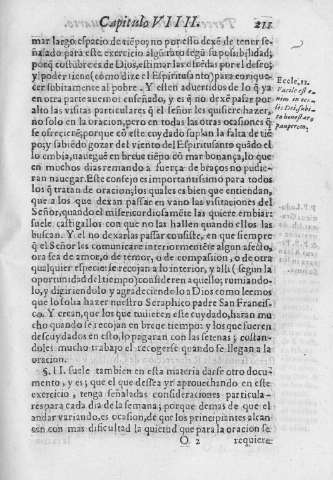 Capitulo VIIII. 211
mar largo espacio de tiẽpo; no por esto dexẽ de tener se-
ñalado para este exercicio algũ rato segũ su posibilidad;
porq̃ costũbre es de Dios, estimar las obras por el deseo;
y poder tiene (como dize el Espiritu santo) para enrique-
cer subitamente al pobre. Y esten aduertidos de lo q̃ ya
en otra parte auemos enseñado, y es q̃ no dexẽ pasar por
alto las visitas particulares q̃ el señor les quisiere hazer,
no solo en la oracion, pero en todas las otras ocasiones q̃
se ofrecierẽ; porque cõ este cuydado suplan la falta de tiẽ
po; y sabiẽdo gozar del viento del Espiritu santo quãdo el
lo embia, nauegue en breue tiẽpo cõ mar bonança, lo que
en muchos dias remando a fuerça de braços no pudie-
ran nauegar. Este consejo es importantissimo para todos
los q̃ tratan de oracion; los quales es bien que entiendan,
que a los que dexan passar en vano las visitaciones del
Señor, quando el misericordiosamẽte las quiere embiar;
suele castigallos con que no las hallen quando ellos las
buscan. Y el no dexarlas passar consiste, en que siempre
q̃ el Señor les comunicare interiormentẽ algun afecto,
ora sea de amor, o de temor, o de compasion, o de otra
qualquier especie: se recojan a lo interior, y alli (segun la
oportunidad del tiempo) consideren aquello; rumiando-
lo, y digiriendolo y agradeciendolo a Dios como leemos
que lo solia hazer nuestro Seraphico padre San Francis-
co. Y crean, que los que tuuieren este cuydado, haran mu
cho quando se recojan en breue tiempo: y los que fueren
descuydados en esto, lo pagaran con las setenas; costan-
doles mucho trabajo el recogerse quando se llegan a la
oracion.
§. 11. Suele tambien en esta materia darse otro docu-
mento, y es; que el que dessea yr aprouechando en este
exercicio, tenga señaladas consideraciones particula-
res para cada dia de la semana; porque demas de que el
andar variando, es ocasion, de que los principiantes alcan
cen con mas dificultad la quietud que para la oracion se
O 2 requiere
Eccle. 11.
Facile est e-
nim in ocu-
lis Dei, subi-
to honestare
pauperem.